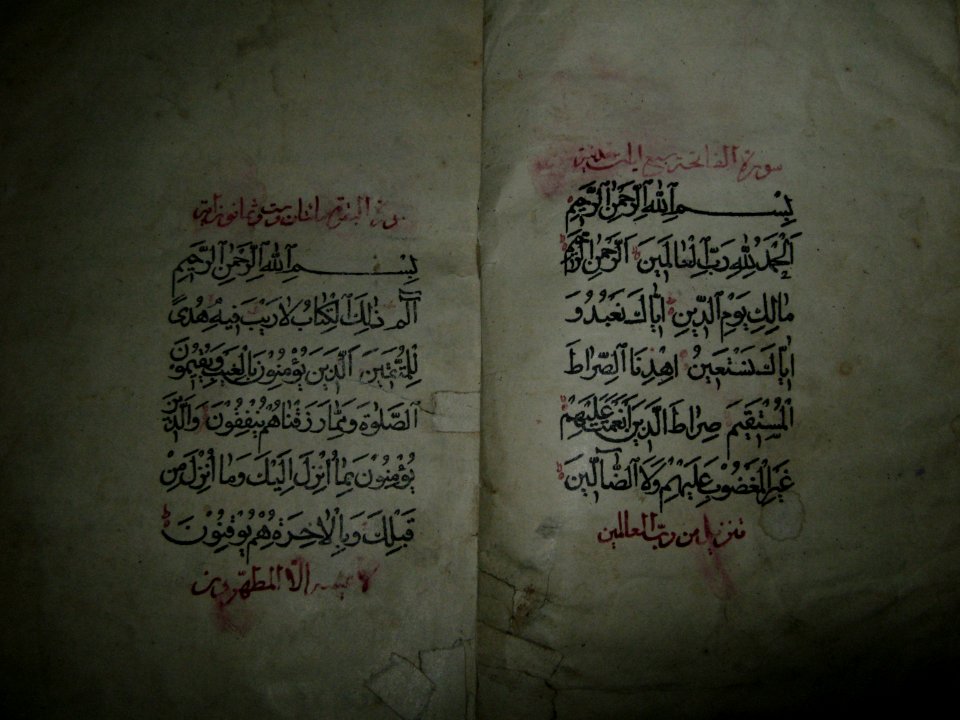 سورة الفاتحة سبع ايات
بِسْمِ ٱللَّهِ ٱلرَّحْمٰنِ ٱلرَّحِيمِ
اَلْحَمْدُ لِلّٰهِ رَبِّ ٱلْعَالَمِينَ اَلرَّحْمٰنِ ٱلرَّحِيمِ
مَالِكِ يَوْمِ ٱلدِّينِ اِيَّاكَ نَعْبُدُ وَ
اِيَّاكَ نَسْتَعِينُ اِهْدِنَا ٱلصِّرَاطَ
ٱلْمُسْتَقِيمَ صِرَاطَ ٱلَّذِينَ اَنْعَمْتَ عَلَيْهِمْ
غَيْرِ ٱلْمَغْضُوبِ عَلَيْهِمْ وَلَا ٱلضَّآلِّينَ
تنزيل من ربّ العالمين
البقرة مائتان وست وثمانون اية
بِسْمِ ٱللَّهِ ٱلرَّحْمٰنِ ٱلرَّحِيمِ
الٓمٓ ذٰلِكَ ٱلْكِتَابُ لَا رَيْبَ فِيهِ هُدًى
لِلْمُتَّقِينَ اَلَّذِينَ يُؤْمِنُونَ بِالْغَيْبِ وَيُقِيمُونَ
ٱلصَّلٰوةَ وَمِمَّا رَزَقْنَاهُمْ يُنْفِقُونَ وَٱلَّذِينَ
يُؤْمِنُونَ بِمَا اُنْزِلَ اِلَيْكَ وَمَا اُنْزِلَ مِنْ
قَبْلِكَ وَبِالْاٰخِرَةِ هُمْ يُوقِنُونَ
لا يمسه الّا المطهّرون